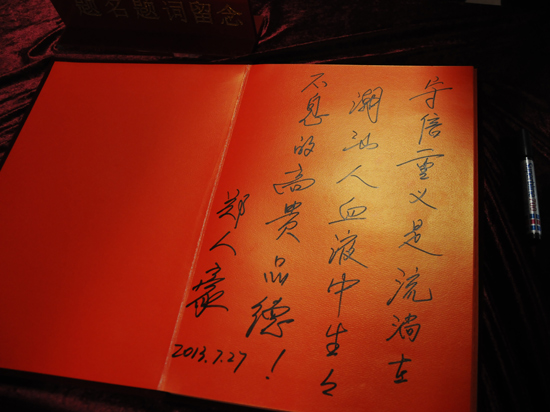 题名题词留念
守信重义是流淌在
潮汕人血液中生々
不息的高贵品德！
郑人豪
2013.7.27